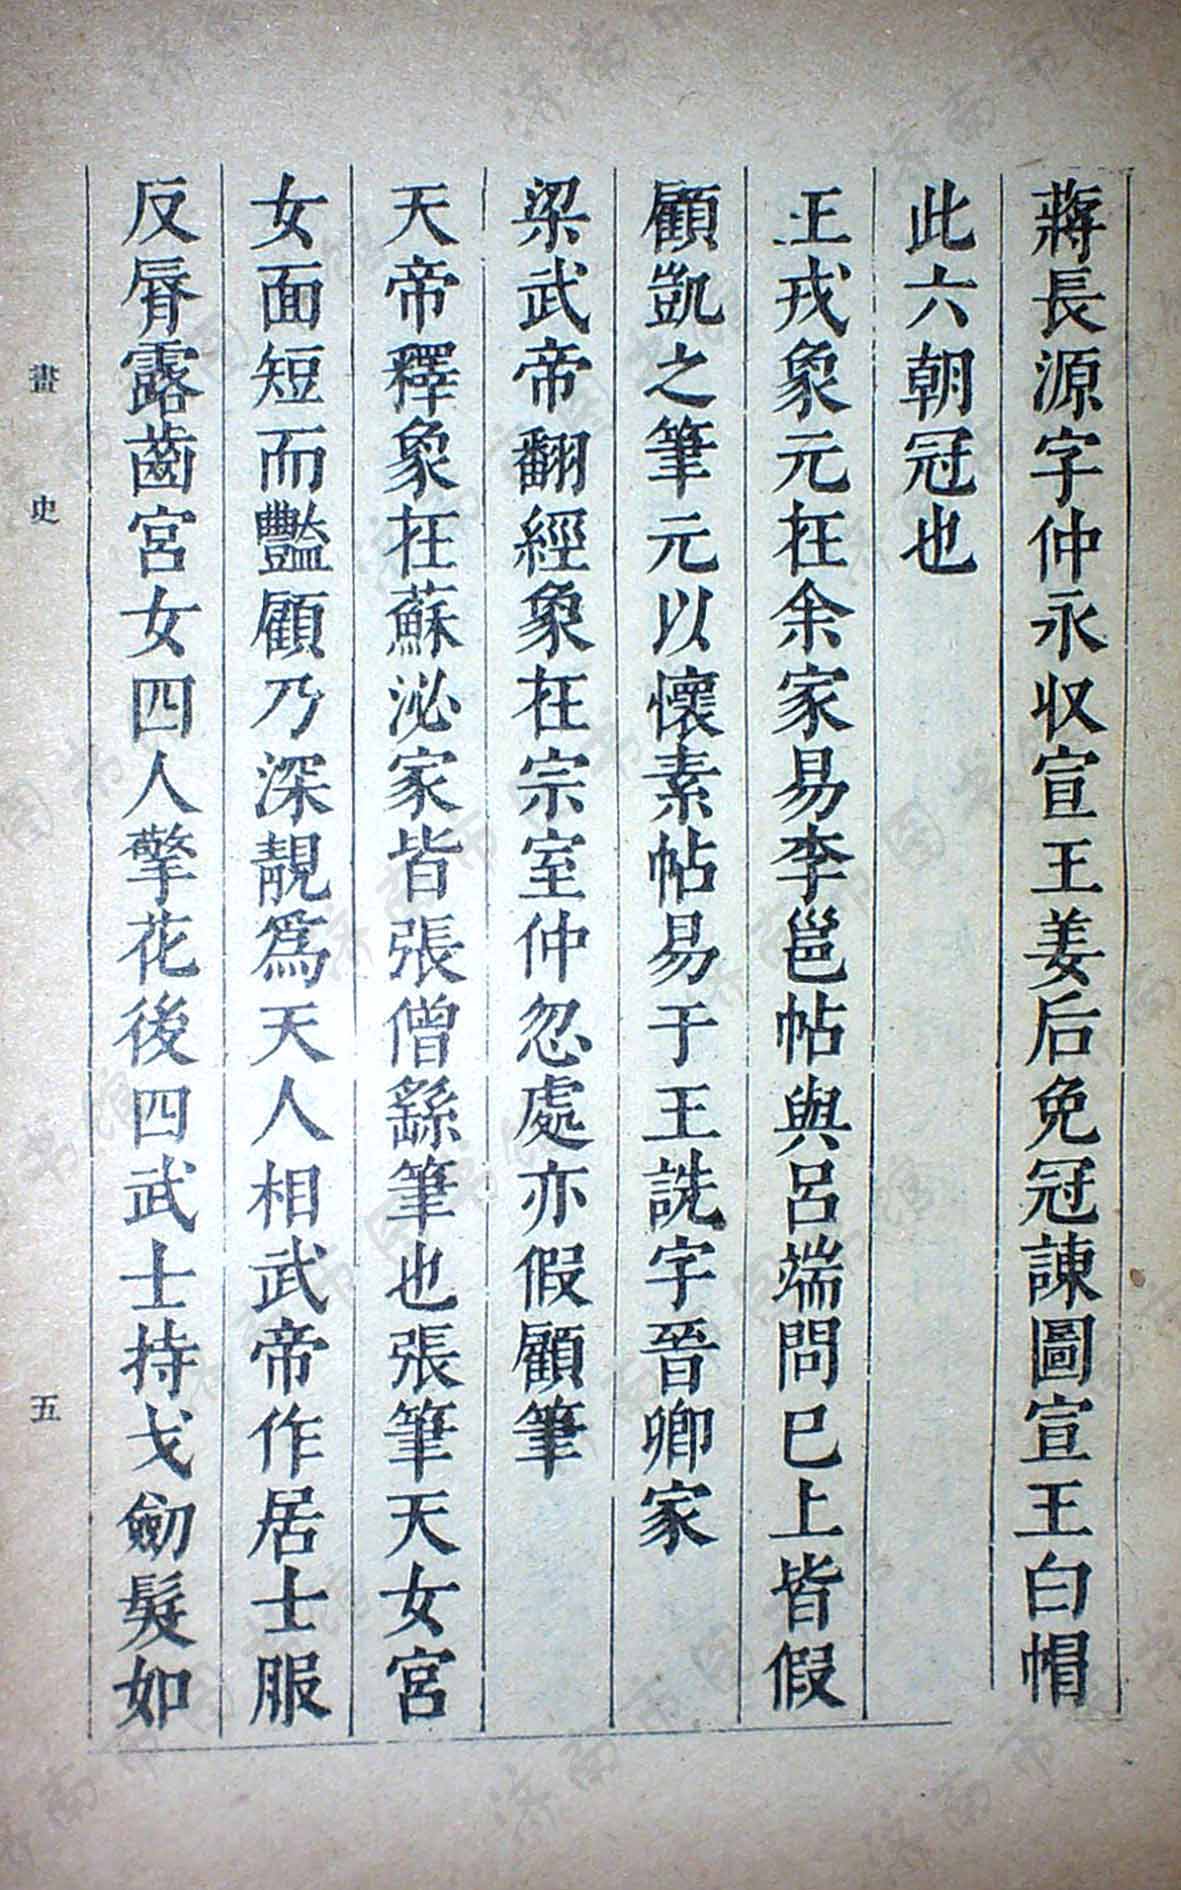 蔣長源字仲永収宣王姜后免冠諫圖宣王白帽
此六朝冠也
王戎象元在余家易李邕帖與呂端問巳上皆假
顧凱之筆元以懷素帖易于王詵字晉卿家
梁武帝翻經象在宗室仲忽處亦假顧筆
天帝釋象在蘇泌家皆張僧繇筆也張筆天女宮
女面短而豔顧乃深靚爲天人相武帝作居士服
反脣露齒宮女四人擎花後四武士持戈劒髮如
畫史 五